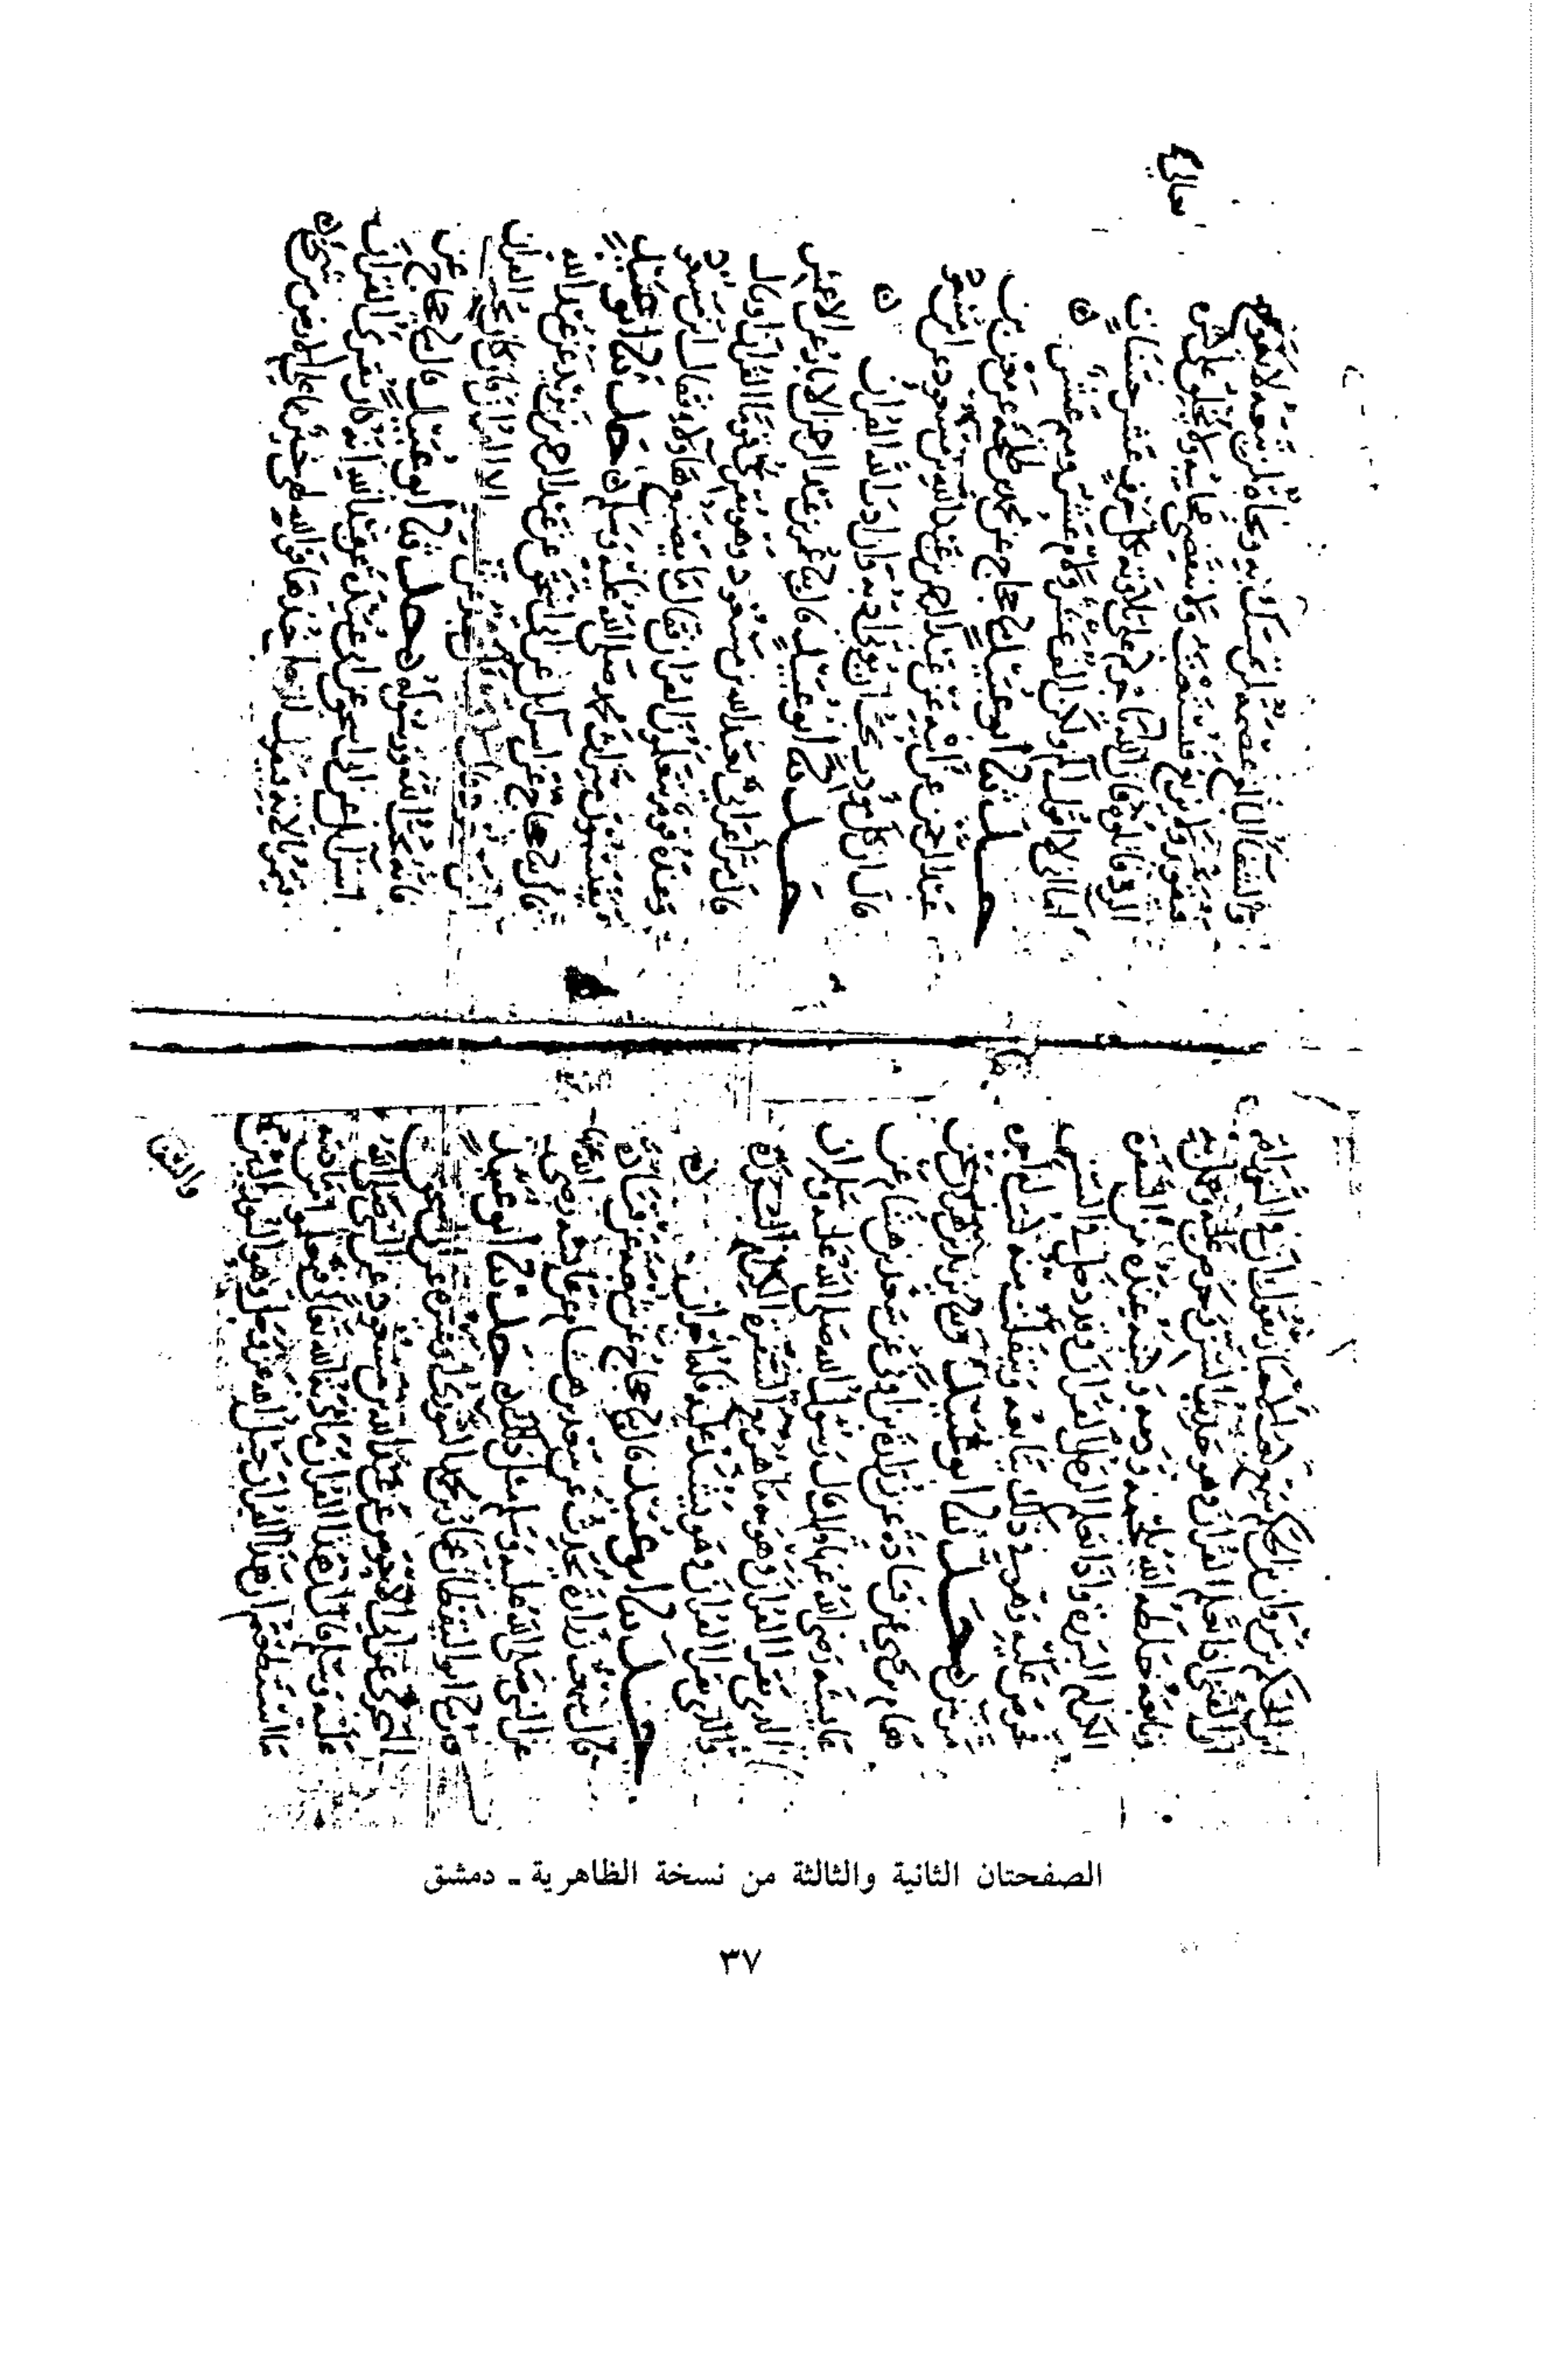 ان الفتى اذا تعلم القران وهو حديث السن وحرص عليه وعمل به
وتابعه خلطه الله بلحمه ودمه وكتبه عنده من السفرة
الكرام البررة واذا تعلم الرجل القران وقد دخل في السن
فحرص عليه وهو في ذلك يتابعه ويتفلت منه كتب له اجره
مرتين حدثنا ابو عبيد يزيد بن هرون عن
همام بن يحيى عن قتادة عن زرارة بن اوفى عن سعد بن هشام عن
عايشة رضي الله عنها قالت قال رسول الله صلى الله عليه وسلم ان
الذي يقرا القران وهو به ماهر مع السفرة الكرام البررة
والذي يقرا القران وهو يشتد عليه فله اجران
حدثنا ابو عبيد قال حجاج عن شعبة عن قتادة
قال سمعت زرارة يحدث عن سعد بن هشام عن عايشة رضي الله عنها
عن النبي صلى الله عليه وسلم مثل ذلك حدثنا ابو عبيد
ابو اليقظان عمار بن محمد الثوري او غيره عن ابي اسحق
الهجري عن ابي الاحوص عن عبد الله بن مسعود عن النبي صلى الله
عليه وسلم قال ان هذا القران مادبة الله تعالى فتعلموا من مادبته
ما استطعتم ان هذا القران حبل الله عز وجل وهو النور المبين
والشفا
والشفا النافع عصمة لمن تمسك به ونجاة لمن تبعه لا يعوج
فيقوم ولا يزيغ فيستعتب ولا تنقضي عجايبه ولا يخلق عن كثرة
الرد فاتلوه فان الله ياجركم على تلاوته بكل حرف عشر حسنات
اما اني لا اقول الم ولكن الف عشر ولام عشر وميم عشر
حدثنا ابو عبيد حجاج عن محمد بن طلحة عن معن بن
عبد الرحمن عن ابيه عبد الرحمن بن عبد الله بن مسعود عن ابن مسعود
قال ان كل مودب يحب ان يوتى ادبه وان ادب الله القران
حدثنا ابو عبيد قال عمر بن عبد الرحمن الابار عن الاعمش
قال مر اعرابي بعبد الله بن مسعود وهو يقري قوما القران او قال
وعنده قوم يتعلمون القران فقال ما يصنع هاولا فقال ابن مسعود
يقتسمون ميراث محمد صلى الله عليه وسلم حدثنا ابو عبيد
قال حجاج عن اسرايل عن ابي اسحق عن عبد الرحمن بن يزيد عن عبد الله
الا القران فان كان يحب القران
فانه يحب الله ورسوله حدثنا ابو عبيد قال حجاج عن
اسرايل عن ابي اسحق عن ابي عبيدة عن عبد الله انه كان يقري القران
فيمر بالاية فيقول للرجل خذها فوالله لهي خير مما على الارض من شي
الصفحتان الثانية والثالثة من نسخة الظاهرية ـ دمشق
٣٧